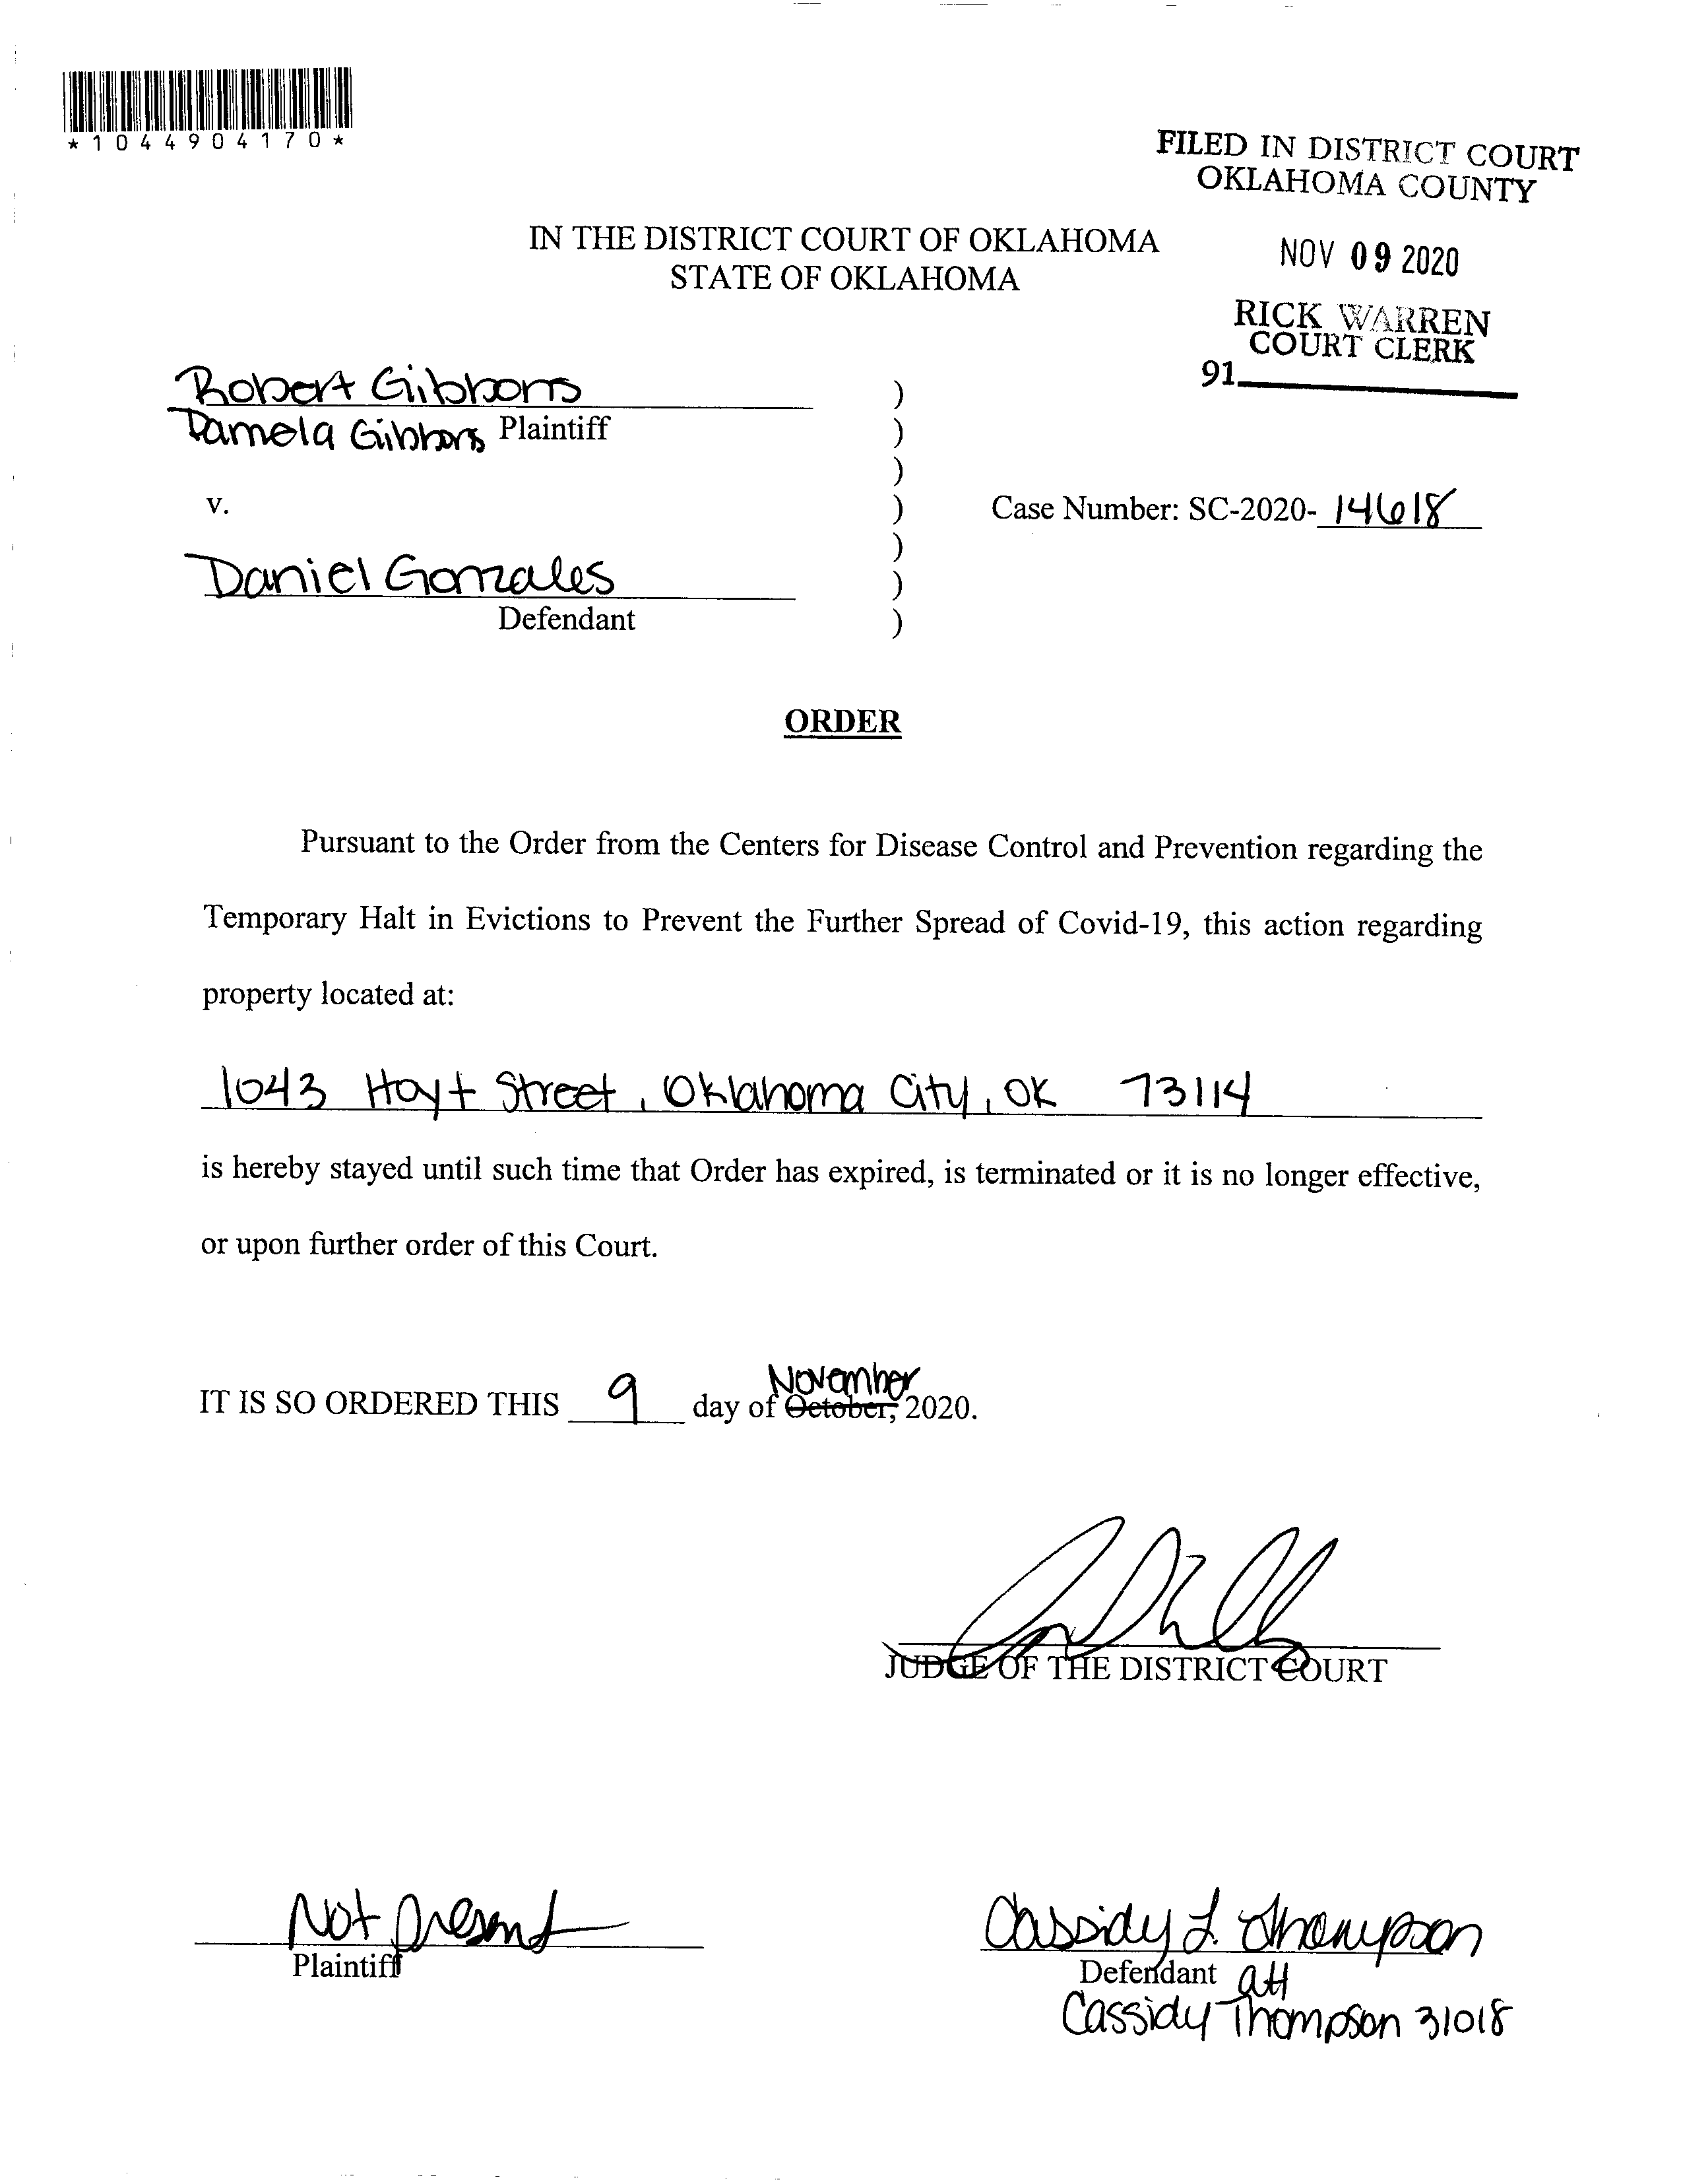 *1044904170*
FILED IN DISTRICT COURT
OKLAHOMA COUNTY
NOV 09 2020
RICK WARREN
COURT CLERK
91
IN THE DISTRICT COURT OF OKLAHOMA
STATE OF OKLAHOMA
Robert Gibbons
Pamela Gibbons Plaintiff
v.
Case Number: SC-2020- 14618
Daniel Gonzales
Defendant
)
)
)
)
)
)
)
ORDER
Pursuant to the Order from the Centers for Disease Control and Prevention regarding the
Temporary Halt in Evictions to Prevent the Further Spread of Covid-19, this action regarding
property located at:
1043 Hoyt Street, Oklahoma City, OK 73114
is hereby stayed until such time that Order has expired, is terminated or it is no longer effective,
or upon further order of this Court.
November
IT IS SO ORDERED THIS 9 day of October, 2020.
JUDGE OF THE DISTRICT COURT
Not present
Plaintiff
Cassidy L. Thompson
Defendant att
Cassidy Thompson 31018